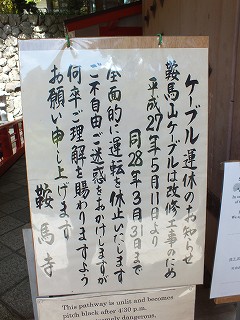 ケーブル運休のお知らせ
鞍馬山ケーブルは改修工事のため
平成27年5月11日より
同28年3月31日まで
全面的に運転を休止いたします
ご不自由ご迷惑をおかけしますが
何卒ご理解を賜わりますよう
お願い申し上げます
鞍馬寺
This pathway is unlit and becomes
pitch black after 4:30 p.m.